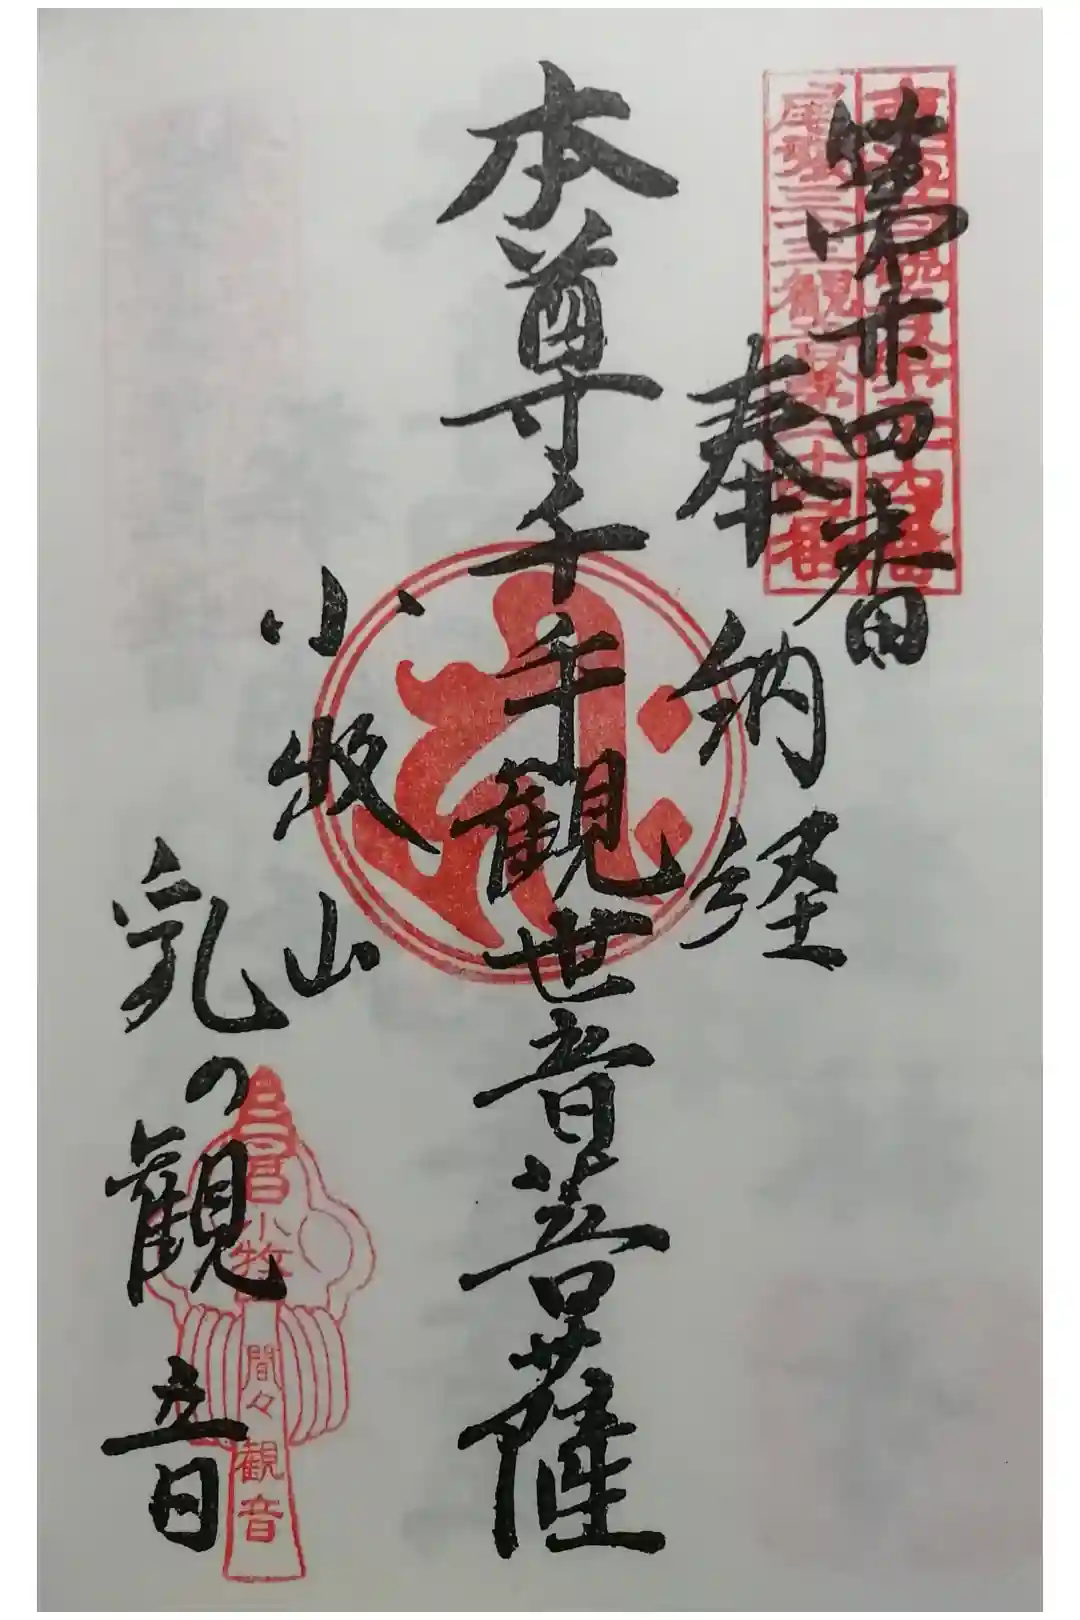 第廿四番
奉
納
経
本尊千手観世音菩薩
小牧山
乳の観音
小牧
間々
観音